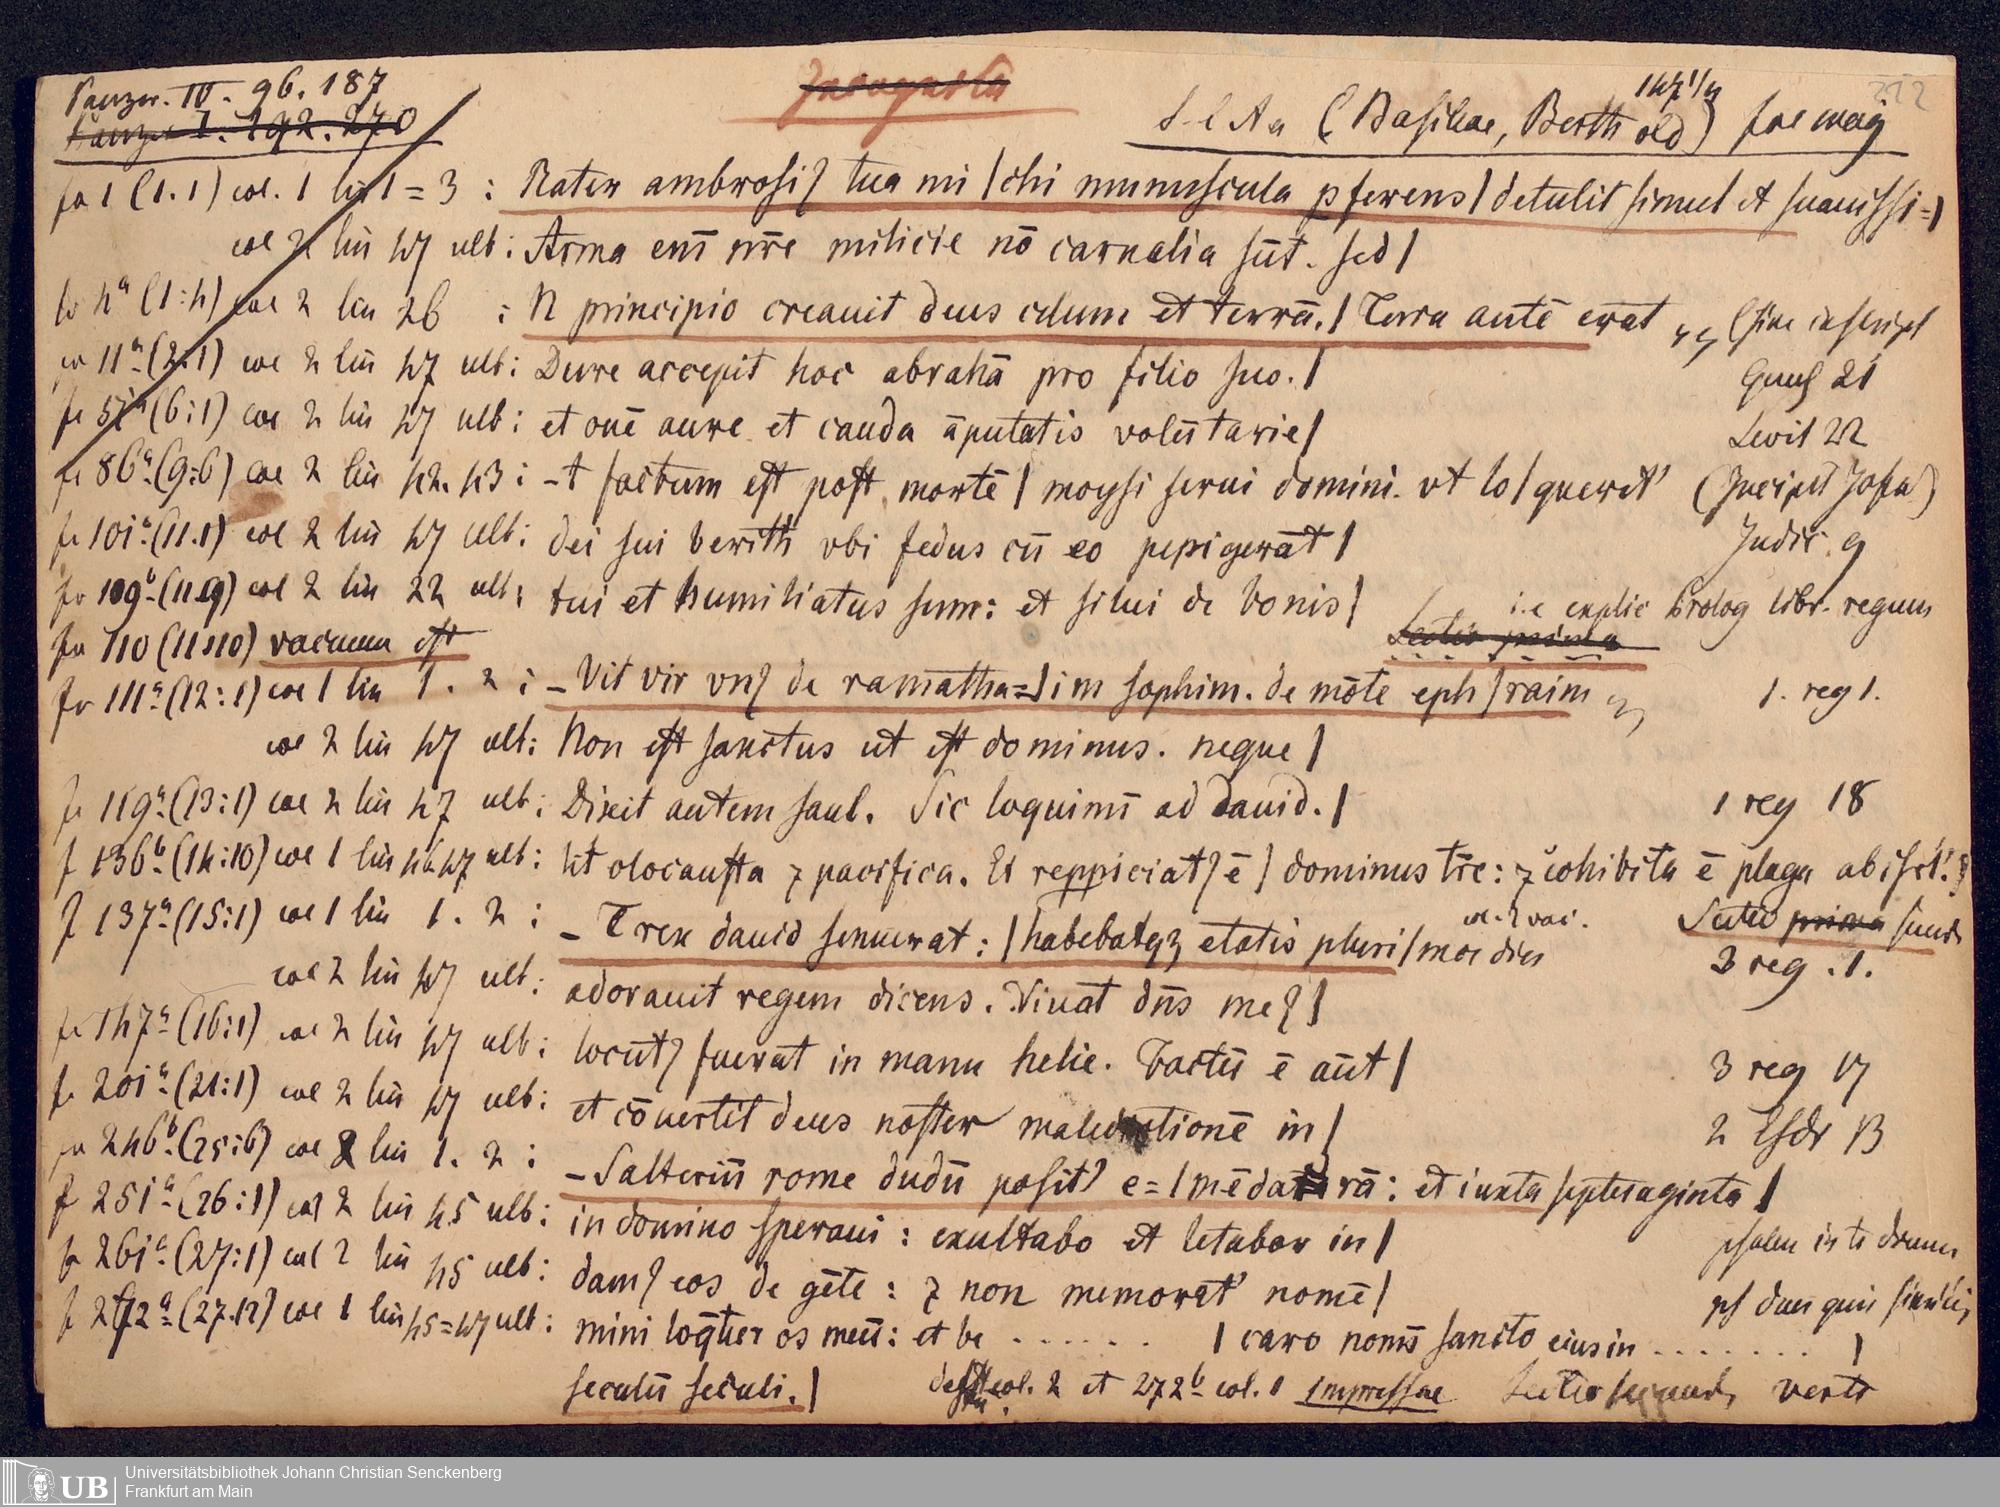 Panzer. IV. 96. 187
Panzer I. 192. 270
Incognita
1471/4
S-l A a (Basileae, Berthold) foe maj
352
fo 1 (1.1) col. 1 lin 1=3 : Rater ambrosiꝰ tua mi | chi munuscula pferens | detulit simul et suauissi= |
col 2 lin 47 ult: Arma eni nre milicie nō carnalia sūt. sed |
fo 4a (1:4) col 2 lin 26 : N principio creauit deus celum et terrā. | Terra autē erat (sine inscript
fo 11a (2.1) col 2 lin 47 ult: Dure accepit hoc abrahā pro filio suo. | Gines 21
fo 51a (6:1) col 2 lin 47 ult: et ouē aure et cauda āputatis volūtarie | Levit 22
fo 86a (9:6) col 2 lin 42. 43 : -t factum est post mortē | moysi serui domini. vt lo | queret' (Incipit Josua)
fo 101a (11.1) col 2 lin 47 ult: dei sui berith vbi fedus cū eo pepigerāt | Judic. 9
fo 109b (11.9) col 2 lin 22 ult: tui et humiliatus sum: et silui de bonis | i.e explic Prolog libr. regum
fo 110 (11:10) vacuum est Lectio prima
fo 111a (12:1) col 1 lin 1. 2 : -Vit vir vnꝰ de ramatha= | im sophim. de mōte eph | raim 1. reg 1.
col 2 lin 47 ult: Non est sanctus ut est dominus. neque |
fo 119a (13:1) col 2 lin 47 ult: Dixit autem saul. Sic loquimī ad dauid. | 1 reg 18
f 136b (14:10) col 1 lin 46 47 ult: lit olocausta ⁊ pacifica. Et reppiciatꝰ ē | dominus tre: ⁊ cohibita ē plaga ab isrl'. |
col. 2 vac.
f 137a (15:1) col 1 lin 1. 2 : -T rex dauid senuerat: | habebatqꝫ etatis pluri | mos dies Lectio prima secund
3 reg. 1.
col 2 lin 47 ult: adorauit regem dicens. Viuat dn̄s meꝰ |
fo 147a (16:1) col 2 lin 47 ult: locūtꝰ fuerat in manu helie. Factū ē aūt | 3 reg 17
fo 201a (21:1) col 2 lin 47 ult: et cōuertit deus noster maledictionē in | 2 Esdr 13
fo 246b (25:6) col 2 lin 1. 2 : -Salteriū rome dudū positꝰ e= | mēda rā: et iuxta septuaginta |
f 251a (26:1) col 2 lin 45 ult: in domino speraui: exultabo et letabor in | psalm in te domin
fo 261a (27:1) col 2 lin 45 ult: damꝰ eos de gēte: ⁊ non memoret' nomē | ps deus quis similis
f 272a (27.12) col 1 lin 45=47 ult: mini loq̄tur os meū: et be . . . . . . | caro nomī sancto eius in . . . . . . . |
seculū seculi. | dest col. 2 et 272b col. 1 impressae Lectio secunda verte
UB Universitätsbibliothek Johann Christian Senckenberg
Frankfurt am Main